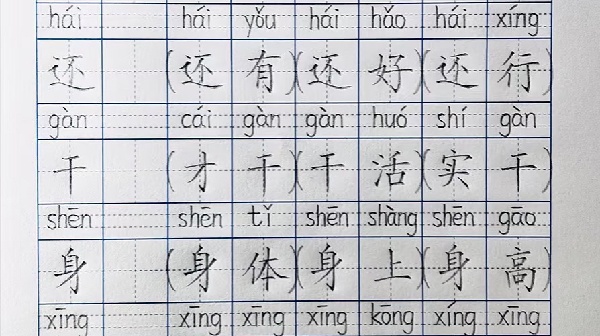 hái hái yǒu hái hǎo hái xíng
还 (还有)(还好)(还行)
gàn cái gàn gàn huó shí gàn
干 (才干)(干活)(实干)
shēn shēn tǐ shēn shàng shēn gāo
身 (身体)(身上)(身高)
xīng xīng xīng xīng kōng xíng xīng